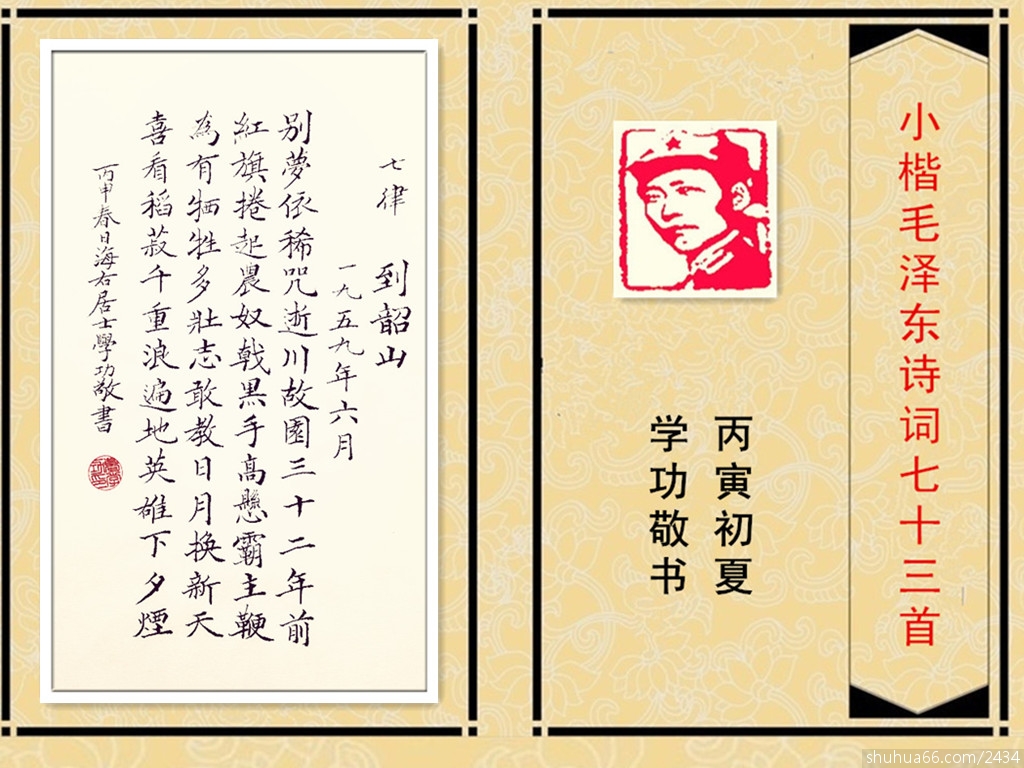 小楷毛泽东诗词七十三首
丙寅初夏
学功敬书
七律
到韶山
一九五九年六月
别夢依稀咒逝川故園三十二年前
紅旗捲起農奴戟黑手高懸霸主鞭
為有牺牲多壯志敢教日月换新天
喜看稻菽千重浪遍地英雄下夕煙
丙申春日海右居士學功敬書
shuhua66.com/2434